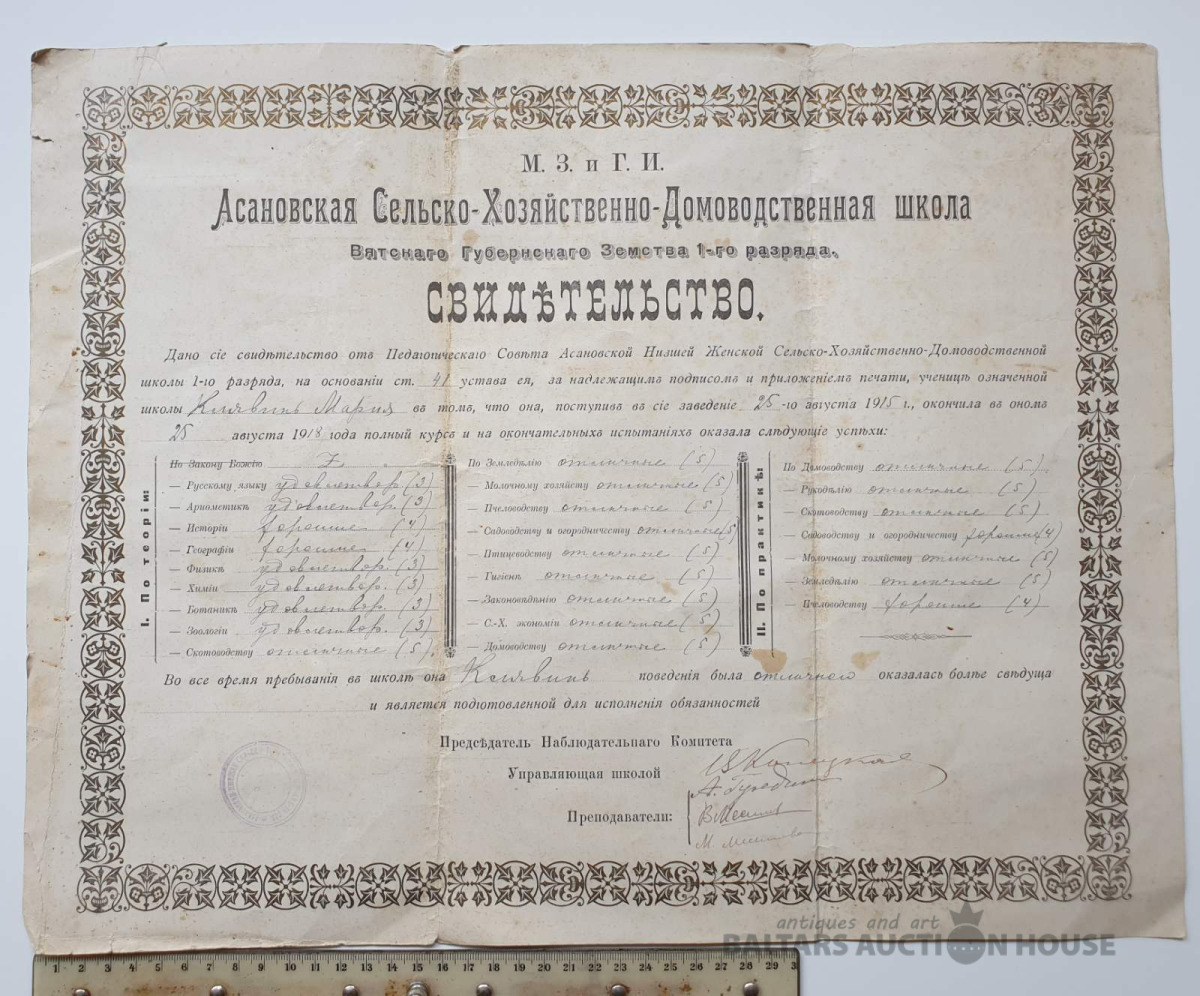 М. З. и Г. И.
Асановская Сельско-Хозяйственно-Домоводственная школа
Вятскаго Губернскаго Земства 1-го разряда.
СВИДѢТЕЛЬСТВО.
Дано сіе свидѣтельство отъ Педагогическаго Совѣта Асановской Низшей Женской Сельско-Хозяйственно-Домоводственной
школы 1-го разряда, на основаніи ст. 41 устава ея, за надлежащимъ подписомъ и приложеніемъ печати, ученицѣ означенной
школы Клявинь Мария въ томъ, что она, поступивъ въ сіе заведеніе 25-го августа 1915 г., окончила въ ономъ
25 августа 1918 года полный курсъ и на окончательныхъ испытаніяхъ оказала слѣдующіе успѣхи:
I. По теоріи:
По Закону Божію
— Русскому языку удовлетвор. (3)
— Ариѳметикѣ удовлетвор. (3)
— Исторіи хорошие (4)
— Географіи хорошие (4)
— Физикѣ удовлетвор. (3)
— Химіи удовлетвор. (3)
— Ботаникѣ удовлетвор. (3)
— Зоологіи удовлетвор. (3)
— Скотоводству отличные (5)
По Земледѣлію отличные (5)
— Молочному хозяйству отличные (5)
— Пчеловодству отличные (5)
— Садоводству и огородничеству отличные (5)
— Птицеводству отличные (5)
— Гигіенѣ отличные (5)
— Законовѣдѣнію отличные (5)
— С.-Х. экономіи отличные (5)
— Домоводству отличные (5)
II. По практикѣ:
По Домоводству отличные (5)
— Рукодѣлію отличные (5)
— Скотоводству отличные (5)
— Садоводству и огородничеству хорошие (4)
— Молочному хозяйству отличные (5)
— Земледѣлію отличные (5)
— Пчеловодству хорошие (4)
Во все время пребыванія въ школѣ она Клявинь поведенія была отличного оказалась болѣе свѣдуща
и является подготовленной для исполненія обязанностей
Предсѣдатель Наблюдательнаго Комитета
Управляющая школой
Преподаватели:
antiques and art
BALTARS AUCTION HOUSE
1 2 3 4 5 6 7 8 9 10 11 12 13 14 15 16 17 18 19 20 21 22 23 24 25 26 27 28 29 3